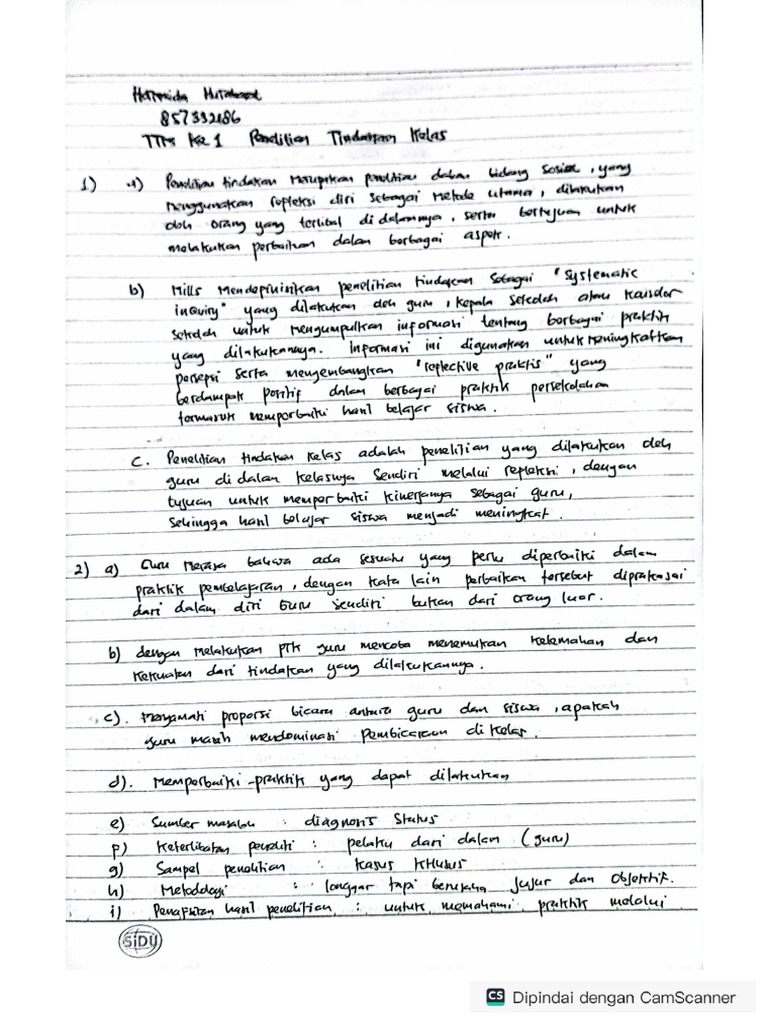 857332186
TTM Ke 1 Penelitian Tindakan Kelas
1) a) Penelitian tindakan merupakan penelitian dalam bidang sosial, yang
menggunakan repleksi diri sebagai metode utama, dilakukan
oleh orang yang terlibat di dalamnya, serta bertujuan untuk
melakukan perbaikan dalam berbagai aspek.
b) Mills mendepinisikan penelitian tindakan sebagai "systematic
inquiry" yang dilakukan oleh guru, kepala sekolah atau
sekolah untuk mengumpulkan informasi tentang berbagai praktik
yang dilakukannya. Informasi ini digunakan untuk meningkatkan
persepsi serta mengembangkan "replective praktis" yang
berdampak positif dalam berbagai praktik persekolahan
termasuk memperbaiki hasil belajar siswa.
C. Penelitian tindakan kelas adalah penelitian yang dilakukan oleh
guru di dalam kelasnya sendiri melalui repleksi, dengan
tujuan untuk memperbaiki kinerjanya sebagai guru,
sehingga hasil belajar siswa menjadi meningkat.
2) a) Guru merasa bahwa ada sesuatu yang perlu diperbaiki dalam
praktik pembelajaran, dengan kata lain perbaikan tersebut diprakasai
dari dalam diri Guru sendiri bukan dari orang luar.
b) dengan melakukan PTK guru mencoba menemukan kelemahan dan
kekuatan dari tindakan yang dilakukannya.
c). Mengamati proporsi bicara antara guru dan siswa, apakah
guru masih mendominasi pembicaraan di kelas.
d). Memperbaiki praktik yang dapat dilakukan
e) Sumber masalah : diagnosis Status
f) Keterlibatan peneliti : pelaku dari dalam (guru)
g) Sampel penelitian : Kasus Khusus
h) Metodologi : longgar tapi berusaha jujur dan objektif.
i) Penafsiran hasil penelitian : untuk memahami praktik melalui
SiDU
CS Dipindai dengan CamScanner